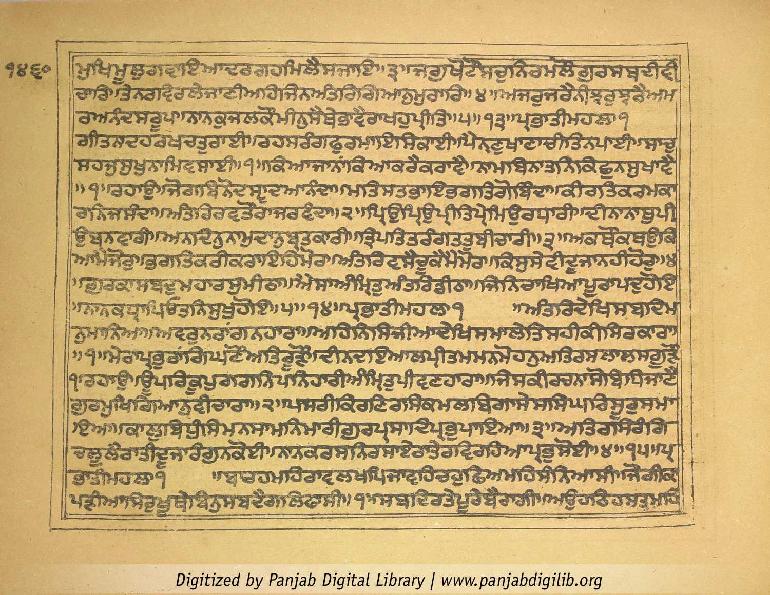 ੧੪੬੦
ਮੁਖਿਮੂਲੁਗਵਾਇਆਦਰਗਹਮਿਲੈਸਜਾਇ॥੩॥ਜਗੁਖੋਟੌਸਚੁਨਿਰਮਲੌਗੁਰਸਬਦੀਵੀ
ਚਾਰਿ॥ਤੇਨਰਵਿਰਲੇਜਾਣੀਅਹਿਜਿਨਅੰਤਰਿਗਿਆਨੁਮੁਰਾਰਿ॥੪॥ਅਜਰੁਜਰੈਨੀਝਰੁਝਰੈਅਮ
ਰਅਨੰਦਸਰੂਪ॥ਨਾਨਕੁਜਲਕੌਮੀਨੁਸੈਥੇਭਾਵੈਰਾਖਹੁਪ੍ਰੀਤਿ॥੫॥੧੩॥ਪ੍ਰਭਾਤੀਮਹਲਾ੧
ਗੀਤਨਾਦਹਰਖਚਤੁਰਾਈ॥ਰਹਸਰੰਗਫੁਰਮਾਇਸਿਕਾਈ॥ਪੈਨ੍ਣੁਖਾਣਾਚੀਤਿਨਪਾਈ॥ਸਾਚੁ
ਸਹਜੁਸੁਖੁਨਾਮਿਵਸਾਈ॥੧॥ਕਿਆਜਾਨਾਂਕਿਆਕਰੈਕਰਾਵੈ॥ਨਾਮਬਿਨਾਤਨਿਕਿਛੁਨਸੁਖਾਵੈ
॥੧॥ਰਹਾਉ॥ਜੋਗਬਿਨੋਦਸ੍ਵਾਦਆਨੰਦਾ॥ਮਤਿਸਤਭਾਇਭਗਤਿਗੋਬਿੰਦਾ॥ਕੀਰਤਿਕਰਮਕਾ
ਰਨਿਜਸੰਦਾ॥ਅੰਤਰਿਰਵਤੌਰਾਜਰਵਿੰਦਾ॥੨॥ਪ੍ਰਿਉਪ੍ਰਿਉਪ੍ਰੀਤਿਪ੍ਰੇਮਿਉਰਧਾਰੀ॥ਦੀਨਾਨਾਥੁਪੀ
ਉਬਨਵਾਰੀ॥ਅਨਦਿਨੁਨਾਮੁਦਾਨੁਬ੍ਰਤਕਾਰੀ॥ਤ੍ਰਿਪਤਿਤਰੰਗਤਤੁਬੀਚਾਰੀ॥੩॥ਅਕਥੌਕਥਉਕਿ
ਆਮੈਜੋਰੁ॥ਭਗਤਿਕਰੀਕਰਾਇਹਿਮੋਰ॥ਅੰਤਰਿਵਸੈਚੂਕੈਮੈਮੋਰ॥ਕਿਸੁਸੇਵੀਦੂਜਾਨਹੀਹੋਰੁ॥੪
॥ਗੁਰਕਾਸਬਦੁਮਹਾਰਸੁਮੀਠਾ॥ਐਸਾਅੰਮ੍ਰਿਤੁਅੰਤਰਿਡੀਠਾ॥ਜਿਨਿਚਾਖਿਆਪੂਰਾਪਦੁਹੋਇ
॥ਨਾਨਕਧ੍ਰਾਪਿਓਤਨਿਸੁਖੁਹੋਇ॥੫॥੧੪॥ਪ੍ਰਭਾਤੀਮਹਲਾ੧ ॥ਅੰਤਰਿਦੇਖਿਸਬਦਿਮ
ਨੁਮਾਨਿਆ॥ਅਵਰੁਨਰਾਂਗਨਹਾਰਾ॥ਅਹਿਨਿਸਿਜੀਆਦੇਖਿਸਮਾਲੇਤਿਸਹੀਕੀਸਿਰਕਾਰਾ
॥੧॥ਮੇਰਾਪ੍ਰਭੁਰਾਂਗਿਘਣੌਅਤਿਰੂੜੌ॥ਦੀਨਦਇਆਲਪ੍ਰੀਤਮਮਨਮੋਹਨੁਅਤਿਰਸਲਾਲਸਗੂੜੌ
੧॥ਰਹਾਉ॥ਊਪਰਿਕੂਪੁਗਗਨਿਪਨਿਹਾਰੀਅੰਮ੍ਰਿਤੁਪੀਵਣਹਾਰਾ॥ਜਿਸਕੀਰਚਨਾਸੋਬਿਧਿਜਾਣੈ
ਗੁਰਮੁਖਿਗਿਆਨੁਵੀਚਾਰਾ॥੨॥ਪਸਰੀਕਿਰਣਿਰਸਿਕਮਲਬਿਗਾਸੇਸਸਿਘਰਿਸੂਰੁਸਮਾ
ਇਆ॥ਕਾਲੁਬਿਧੁੰਸਿਮਨਸਾਮਨਿਮਾਰੀਗੁਰਪ੍ਰਸਾਦਿਪ੍ਰਭੁਪਾਇਆ॥੩॥ਅਤਿਰਸਿਰੰਗਿ
ਚਲੂਲੈਰਾਤੀਦੂਜਾਰੰਗੁਨਕੋਈ॥ਨਾਨਕਰਸਨਿਰਸਾਏਰਾਤੇਰਵਿਰਹਿਆਪ੍ਰਭੁਸੋਈ॥੪॥੧੫॥ਪ੍ਰ
ਭਾਤੀਮਹਲਾ੧ ॥ਬਾਰਹਮਹਿਰਾਵਲਖਪਿਜਾਵਹਿਚਹੁਛਿਅਮਹਿਸੰਨਿਆਸੀ॥ਜੋਗੀਕਾ
ਪੜੀਆਸਿਰਖੂਥੇਬਿਨੁਸਬਦੈਗਲਿਫਾਸੀ॥੧॥ਸਬਦਿਰਤੇਪੂਰੇਬੈਰਾਗੀ॥ਅਉਹਠਿਹਸਤਮਹਿ
Digitized by Panjab Digital Library | www.panjabdigilib.org